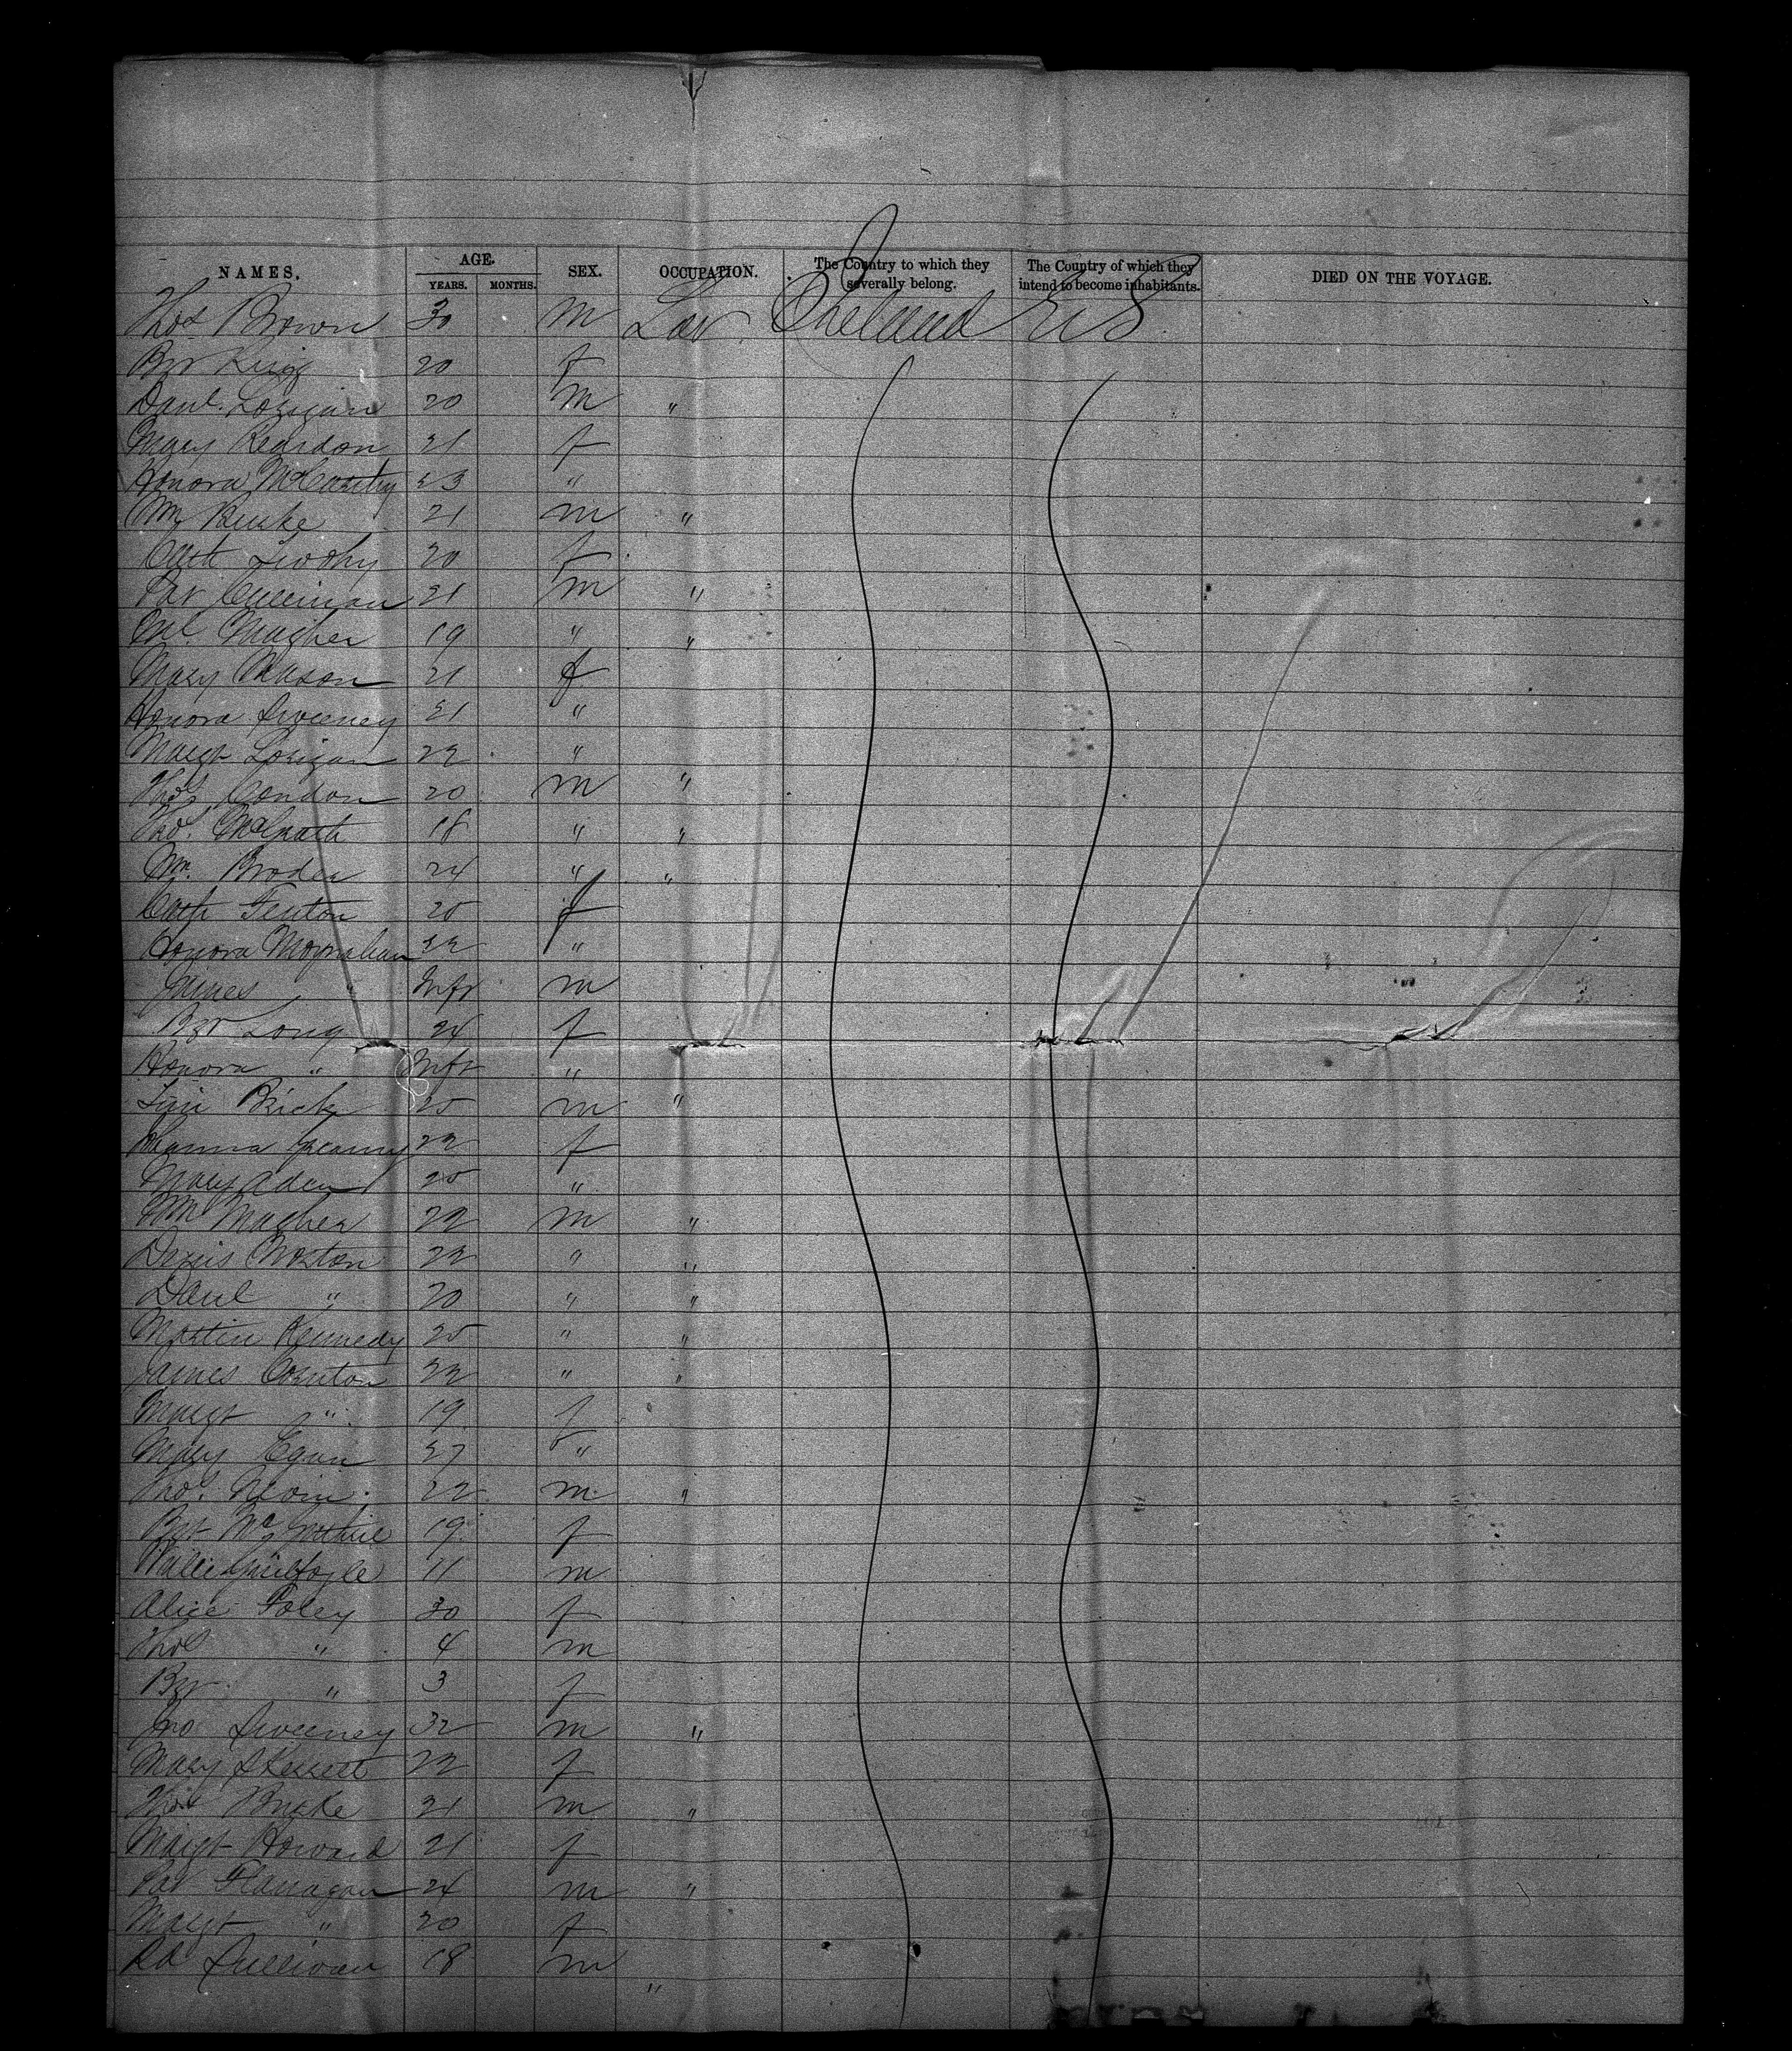 NAMES. AGE. YEARS. MONTHS. SEX. OCCUPATION. The Country to which they severally belong. The Country of which they intend to become inhabitants. DIED ON THE VOYAGE.
Thos Brown 30 m Lab Ireland U S
Bgt King 20 f
Danl. Lorigan 20 m "
Mary Reardon 21 f
Honora McCarthy 23 "
Wm Burke 21 m "
Cath Twohy 20 f
Pat Cullinan 21 m "
Ml Magher 19 " "
Mary Mason 21 f
Honora Sweeney 21 "
Margt Lorigan 22 "
Thos Condon 20 m "
Thos. McGrath 18 " "
Wm. Broder 24 " "
Cath Fenton 20 f
Honora Moynahan 32 "
James " Inft m
Bgt Long 24 f
Honora " Inft "
Brick 25 m "
22 f
Mary Aden 20 "
Wm Magher 22 m "
Denis Norton 22 " "
Danl " 20 " "
Martin Kennedy 25 " "
James 22 " "
Margt " 19 f
Mary Egan 27 "
Thos. Nevin 22 m "
Bgt Mc Guthrie 19 f
Willie Guilfoyle 11 m
Alice Foley 30 f
Thos " 4 m
Bgt " 3 f
Jno Sweeney 32 m "
Mary 22 f
Thos Burke 21 m "
Margt Howard 21 f
Pat Flanagan 24 m "
Margt " 20 f
Rd Sullivan 18 m "